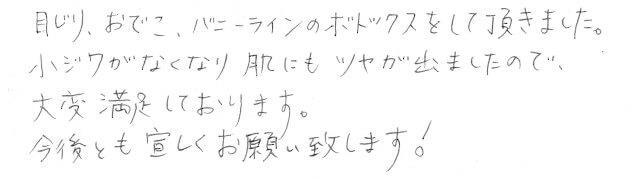 目じり、おでこ、バニーラインのボトックスをして頂きました。
小ジワがなくなり肌にもツヤが出ましたので、
大変満足しております。
今後とも宜しくお願い致します!